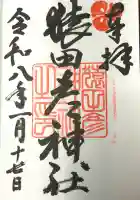 奉拝
猿田彦神社
令和八年一月十七日